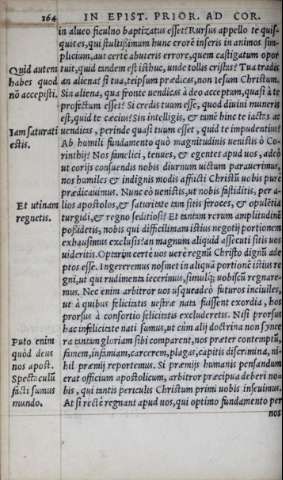 164 IN EPIST. PRIOR. AD COR.
in alueo ficulno baptizatus esset? Rursus appello te quis-
quis es, qui stultissimum hunc errorē inseris in animos sim-
plicium, aut certè abuteris errore, quem castigatum opor
Quid autem tuit, quid tandem est istbuc, unde tollis cristas? Tua tradis
habes quod an aliena? si tua, teipsum prædicas, non Iesum Christum.
nō accepisti. Sin aliena, qua fronte uendicas à deo acceptum, quasi à te
profectum esset? Si credis tuum esse, quod diuini muneris
est, quid te cæcius? Sin intelligis, & tamē hinc te iactas ac
Iam saturati uenditas, perinde quasi tuum esset, quid te impudentius?
estis. Ab humili fundamento quò magnitudinis uenistis ô Co-
rinthij? Nos famelici, tenues, & egentes apud uos, adeò
ut corijs consuendis nobis diurnum uictum parauerimus,
nos humiles & indignis modis afflicti Christū uobis purè
prædicauimus. Nunc eò uenistis, ut nobis fastiditis, per a-
Et utinam lios apostolos, & saturitate iam sitis feroces, & opulētia
regnetis. turgidi, & regno seditiosi? Et tantam rerum amplitudinē
possidetis, nobis qui difficilimam istius negotij portionem
exhausimus exclusis? an magnum aliquid assecuti sitis uos
uideritis. Optarim certè uos uerè regnū Christo dignū ade
ptos esse. Ingereremus nosmet in aliquā portionē istius re
gni, ut qui rudimenta iecerimus, simul; uobiscū regnare-
mus. Nec enim arbitror uos usqueadeò futuros inciuiles,
ut à quibus felicitatis uestræ nata fuissent exordia, hos
prorsus à consortio felicitatis excluderetis. Nisi prorsus
hac infelicitate nati sumus, ut cùm alij doctrina non synce
Puto enim ra tantam gloriam sibi comparent, nos præter contemptū,
quòd deus famem, infamiam, carcerem, plagas, capitis discrimina, ni-
nos apost. hil præmij reportemus. Si præmijs humanis pensandum
Spectaculū erat officium apostolicum, arbitror præcipua deberi no-
facti sumus bis, qui tantis periculis Christum primi uobis inseuimus.
mundo. At si rectè regnant apud uos, qui optimo fundamento per
nos